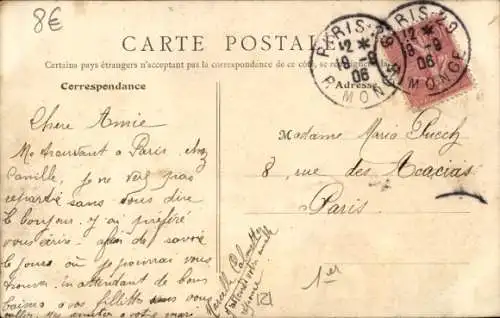 8€
CARTE POSTALE
Certains pays étrangers n'acceptant pas la correspondance de ce côté, se renseigner
Correspondance
Adresse
PARIS-29
12 *
18 -9
06
R. MONGE
PARIS-29
12 *
18 -9
06
R. MONGE
Chere Amie
Me trouvant a Paris chez
Camille, je ne veux pas
repartir sans vous dire
le bonjour. J'ai préféré
vous écrire afin de savoir
le jour où je pourrai vous
trouver. En attendant de bons
baisers a vos fillettes vous
a votre mari
Marcelle
réponse
Madame Maria
8, rue des Acacias
Paris
1er
121